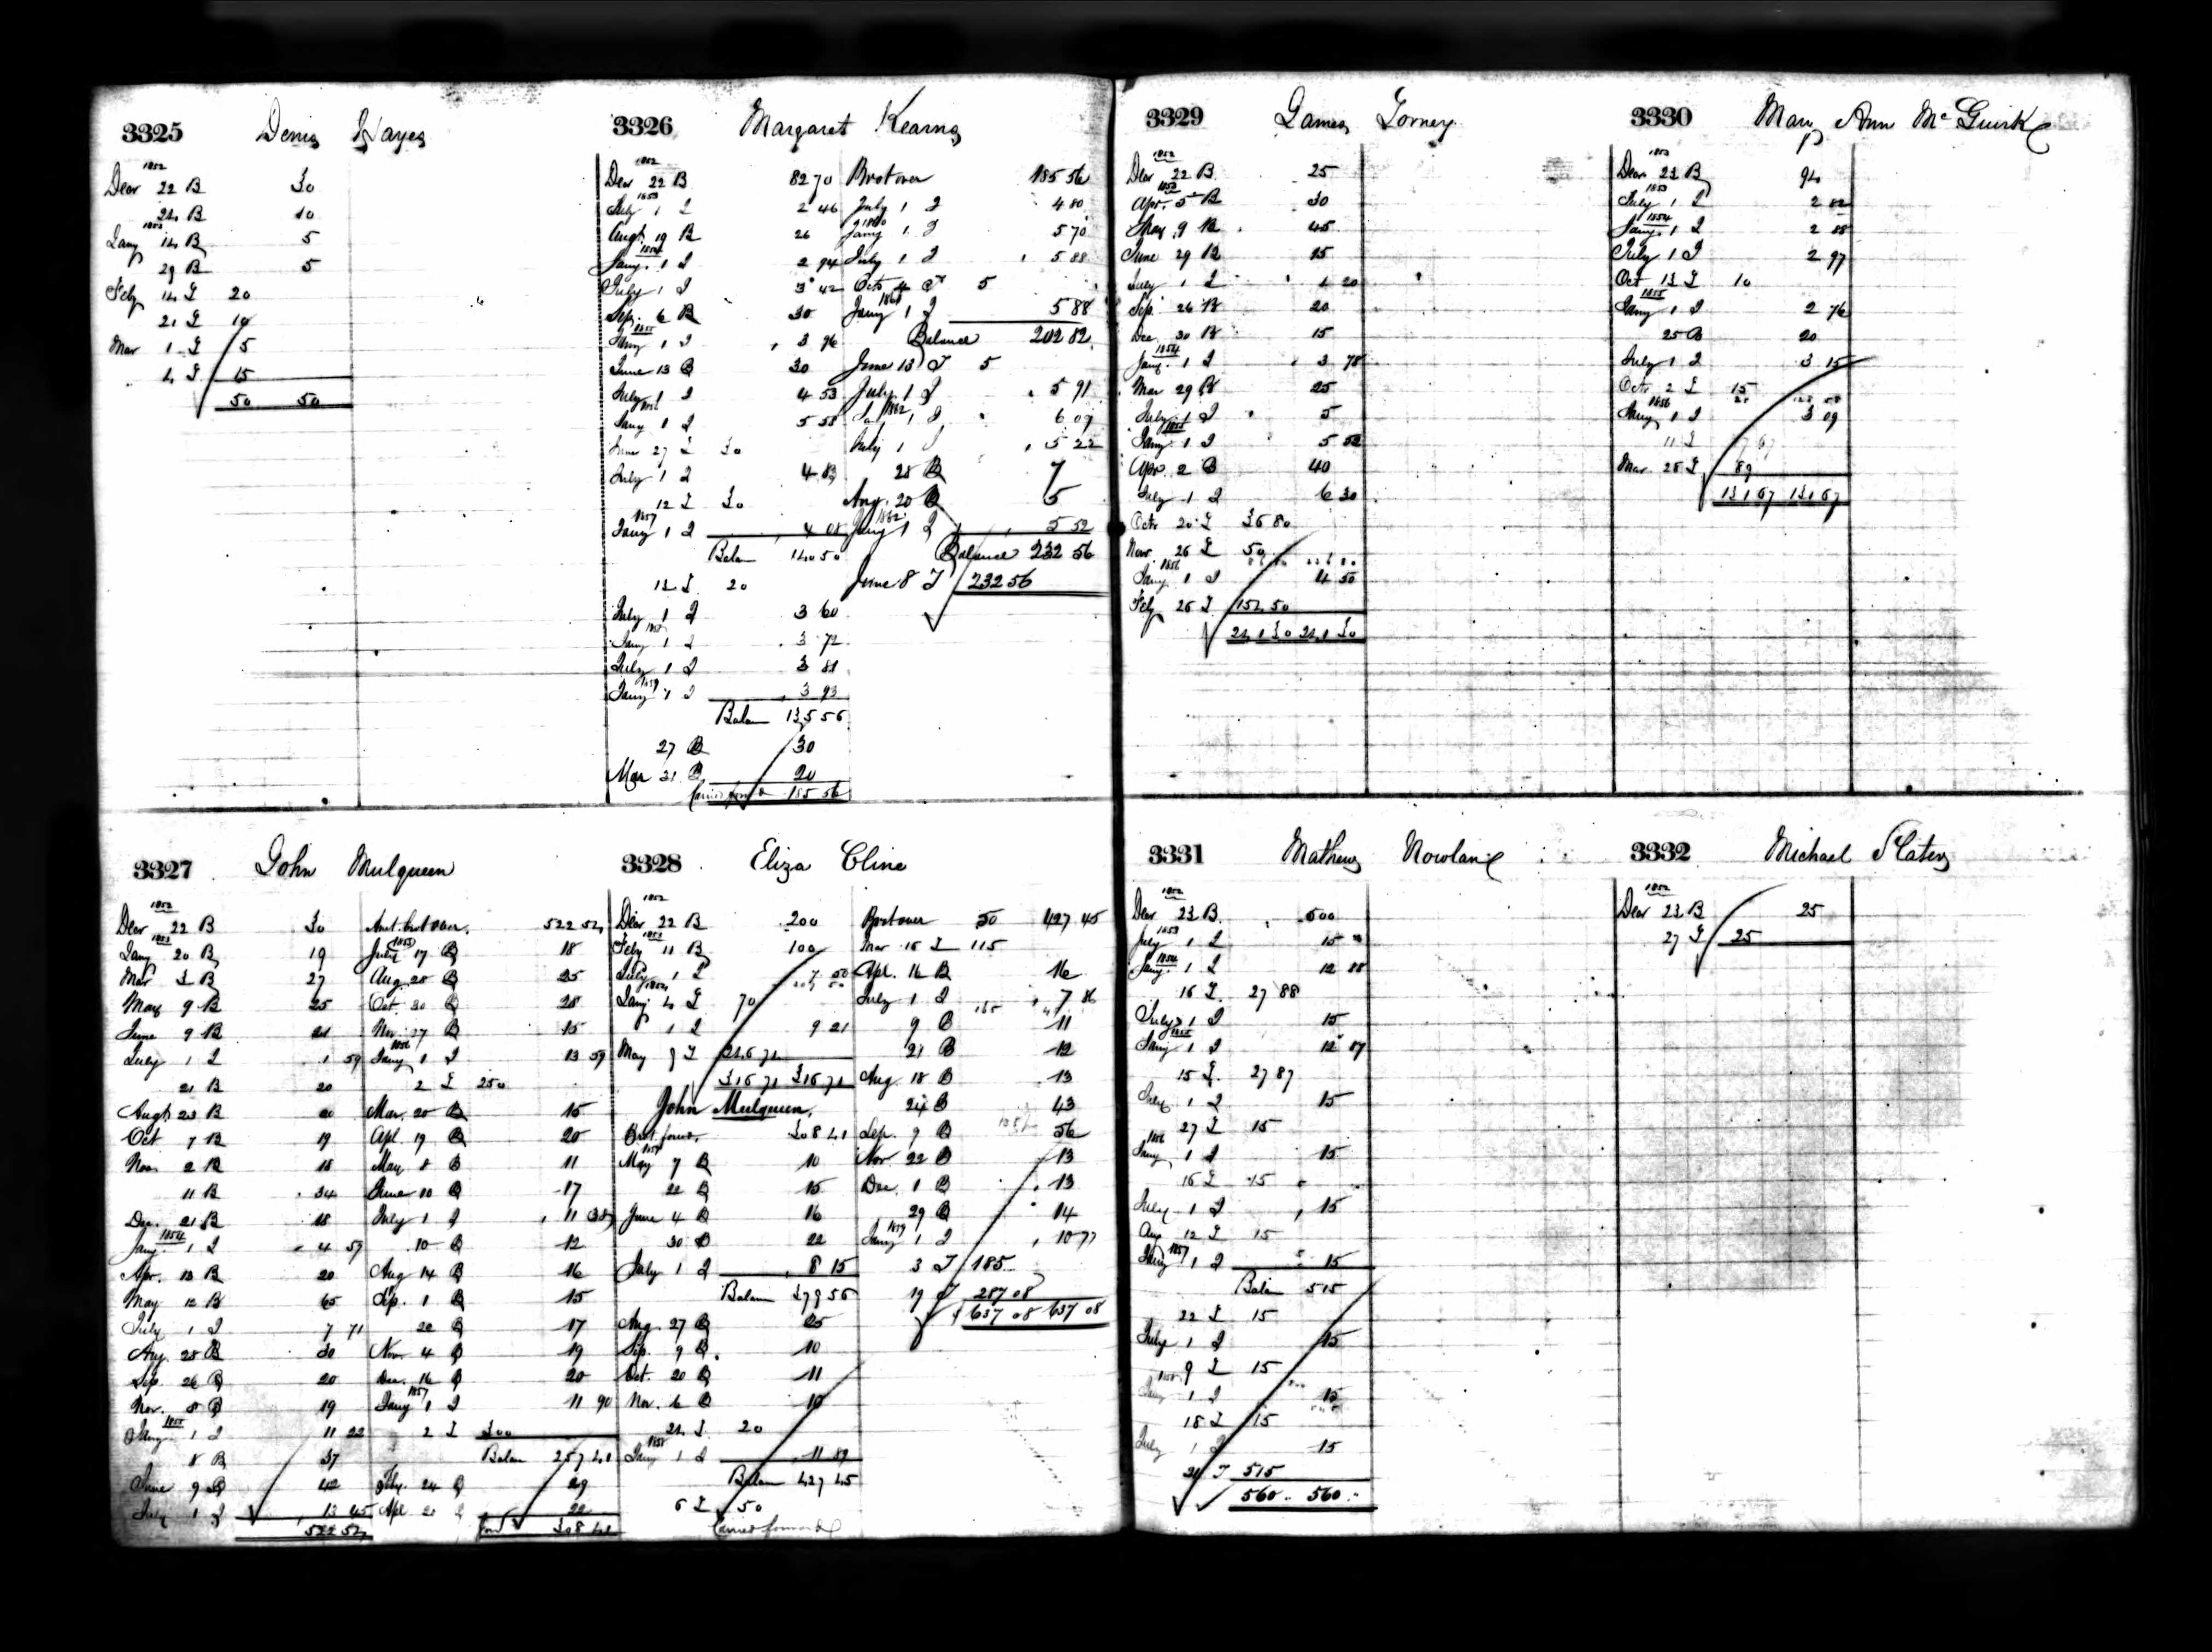 3325 Denis Hayes
1852
Decr 22 B 30
24 B 10
1853
Jany 14 B 5
29 B 5
Feby 14 T 20
21 T 10
Mar 1 T 5
4 T 15
50 50
3326 Margaret Kearns
1852
Decr 22 B 82 70
1853
July 1 I 2 46
Augt 19 B 26
1854
Jany 1 I 2 94
July 1 I 3 42
Sep. 6 B 30
1855
Jany 1 I 3 96
June 13 B 30
July 1 I 4 53
1856
Jany 1 I 5 58
June 27 T 30
July 1 I 4 83
12 T 30
1857
Jany 1 I 4 08
Balan 140 50
12 T 20
July 1 I 3 60
1858
Jany 1 I 3 72
July 1 I 3 81
1859
Jany 1 I 3 93
Balan 135 56
27 B 30
Mar 21 B 20
Carried forwd 185 56
Brot over 185 56
July 1 I 4 80
1860
Jany 1 I 5 70
July 1 I 5 88
Octr 4 T 5
1861
Jany 1 I 5 88
Balance 202 82
June 13 T 5
July 1 I 5 91
1862
1 I 6 09
July 1 I 5 22
28 B 7
Aug. 20 B 5
Jany 1 I 5 52
Balance 232 56
June 8 T 232 56
3327 John Mulqueen
1852
Decr 22 B 30
1853
Jany 20 B 19
Mar 3 B 27
May 9 B 25
June 9 B 21
July 1 I 1 59
21 B 20
Augt 23 B 20
Oct 7 B 19
Nov. 2 B 18
11 B 34
Dec. 21 B 18
1854
Jany 1 I 4 57
Apr. 13 B 20
May 12 B 65
July 1 I 7 71
Aug. 25 B 30
Sep. 26 B 20
Nov. 8 B 19
1855
Jany 1 I 11 22
8 B 37
June 9 B 42
July 1 I 13 45
522 54
Amt brot over 522 54
1855
July 17 B 18
Aug 28 B 25
Oct. 30 B 28
Nov. 27 B 15
1856
Jany 1 I 13 59
2 T 250
Mar. 20 B 15
Apl. 19 B 20
May 8 B 11
June 10 B 17
July 1 I 11 38
10 B 12
Aug 14 B 16
Sep. 1 B 15
22 B 17
Nov. 4 B 19
Dec. 16 B 20
1857
Jany 1 I 11 90
2 T 300
Balan 257 41
Feby. 24 B 29
Apl. 20 B 22
Forwd 308 41
3328 Eliza Cline
1852
Decr 22 B 200
1853
Feby 11 B 100
July 1 I 7 50
1854
Jany 4 T 70
1 I 9 21
May 9 T 246 71
316 71 316 71
John Mulqueen.
Brot forwd. 308 41
1857
May 7 B 10
22 B 15
June 4 B 16
30 B 22
July 1 I 8 15
Balan 379 56
Aug. 27 B 25
Sep. 9 B 10
Oct. 20 B 11
Nov. 6 B 10
24 T 20
1858
Jany 1 I 11 89
Balan 427 45
6 T 50
Carried forward
Brot over 50 427 45
Mar 16 T 115
Apl. 14 B 14
July 1 I 7 86
9 B 11
21 B 12
Aug. 18 B 13
24 B 43
Sep. 9 B 56
Nov. 22 B 13
Dec. 1 B 13
29 B 14
1859
Jany 1 I 10 77
3 T 185
19 T 287 08
637 08 637 08
3329 James Torney
1852
Decr 22 B 25
1853
Apr. 5 B 30
May 9 B 45
June 29 B 15
July 1 I 1 20
Sep. 26 B 20
Dec 30 B 15
1854
Jany 1 I 3 78
Mar 29 B 25
July 1 I 5
1855
Jany 1 I 5 52
Apr 2 B 40
July 1 I 6 30
Octr 20 T 36 80
Nov 26 T 50
1856
Jany 1 I 4 50
Feby 26 T 154 50
241 30 241 30
3330 Mary Ann McGuirk
1852
Decr 23 B 94
1853
July 1 I 2 82
1854
Jany 1 I 2 88
July 1 I 2 97
Oct 13 T 10
1855
Jany 1 I 2 76
25 B 20
July 1 I 3 15
Octr 2 T 15
1856
Jany 1 I 3 09
11 T 17 67
Mar. 28 T 89
131 67 131 67
3331 Mathew Nowland
1852
Decr 23 B 500
1853
July 1 I 15
1854
Jany 1 I 12 88
16 T 27 88
July 1 I 15
1855
Jany 1 I 12 87
15 T 27 87
July 1 I 15
27 T 15
1856
Jany 1 I 15
16 T 15
July 1 I 15
Aug 12 T 15
1857
Jany 1 I 15
Balan 515
22 T 15
July 1 I 15
9 T 15
1858
Jany 1 I 15
18 T 15
July 1 I 15
21 T 515
560 560
3332 Michael Slatery
1852
Decr 23 B 25
27 T 25